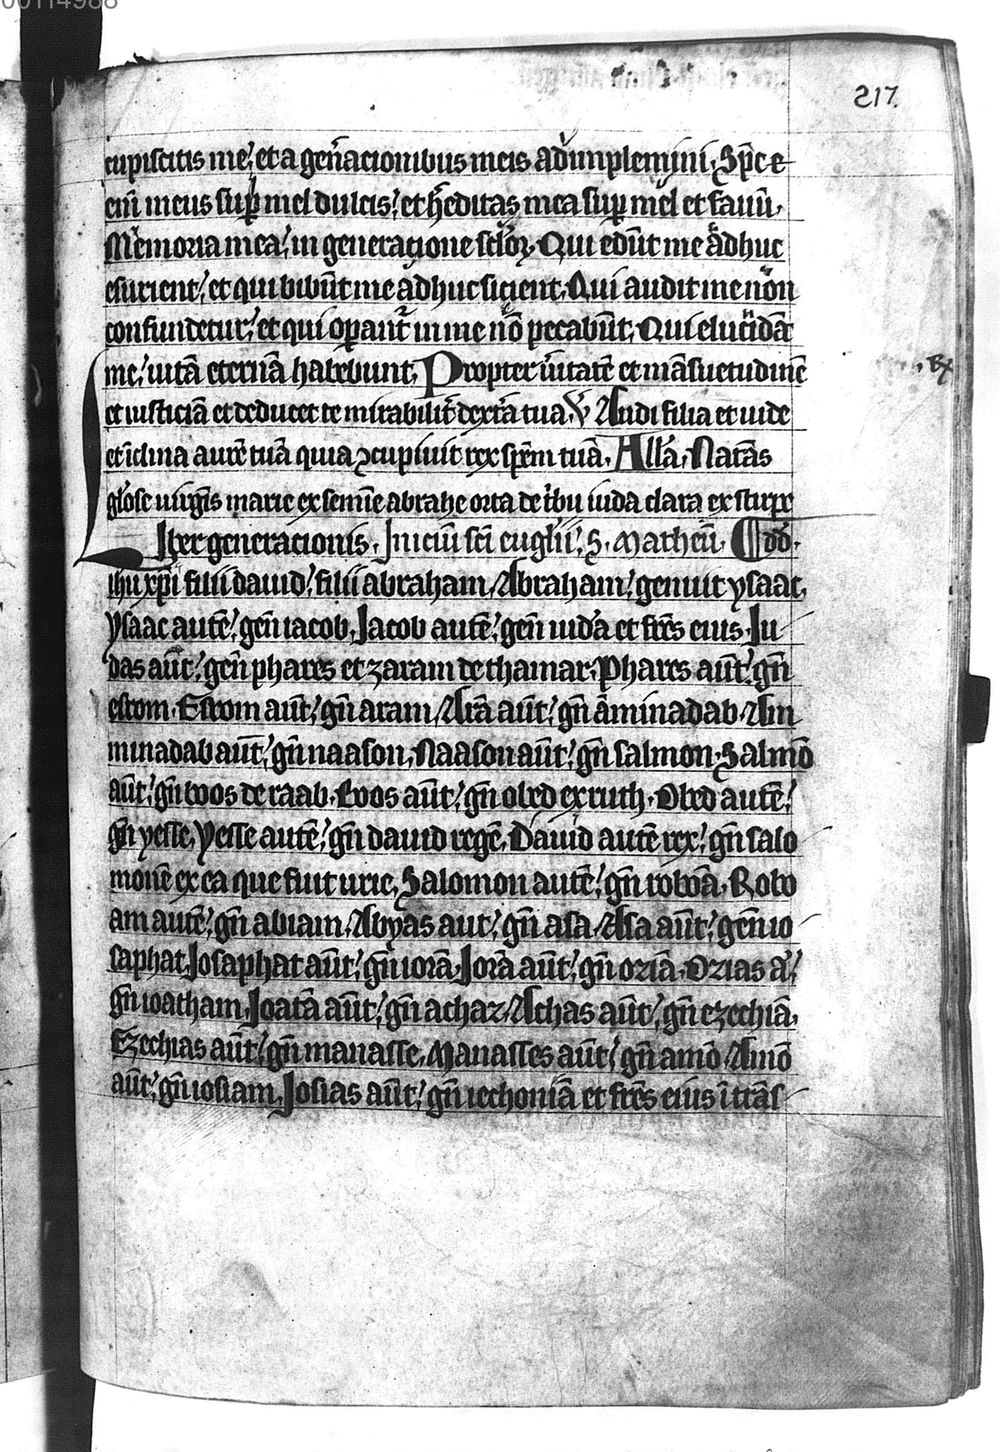 00114988
217.
cupiscitis me, et a gen̄acionibus meis adimplemini, Sp̄c e
eni᷑ meus sup̱ mel dulcis, et h̄editas mea sup̱ mel et fauū,
Memoria mea, in generacione sclo᷑ꝝ, Qui edūt me adhuc
esurient, et qui bibūt me adhuc sicient, Qui audit me non
confundetur, et qui opant᷑ in me nō peccabūt, Qui elucidāt
me, uitā eternā habebunt, Propter uītatē et māsuetudinē
R
et iusticiā et deducet te mirabilit᷑ dext᷑a tua, V Audi filia et uide
et iclina aurē tuā quia ꝯcupiuit rex spēm tuā, All᷑a, Natās
glōse uirgīs marie ex semīe abrahe orta de t᷑bu iuda clara ex stirpe
Liber generacionis, Iniciū sc̄i euglīi, S, Matheū,
ihu xp̄i filii dauid, filii abraham, Abraham, genuit ysaac,
Ysaac autē, gen̄ iacob, Jacob autē, gen̄ iudā et frēs eius, Ju
das aūt, gen̄ phares et zaram de thamar, Phares aūt, gn̄
esrom, Esrom aūt, gn̄ aram, Arā aūt, gn̄ aminadab, Am
minadab aūt, gn̄ naason, Naason aūt, gn̄ salmon, Salmō
aūt, gn̄ boos de raab, Boos aūt, gn̄ obed ex ruth, Obed autē,
gn̄ yesse, Yesse autē, gn̄ dauid regē, Dauid autē rex, gn̄ salo
monē ex ea que fuit urie, Salomon autē, gn̄ roboā, Robo
am autē, gn̄ abiam, Abyas aut, gn̄ asa, Asa aūt, gen̄ io
saphat, Josaphat aūt, gn̄ iorā, Jorā aūt, gn̄ oziā, Ozias a᷑,
gn̄ ioatham, Joatā aūt, gn̄ achaz, Achas aūt, gn̄ ezechiā,
Ezechias aūt, gn̄ manasse, Manasses aūt, gn̄ amō, Amō
aūt, gn̄ iosiam, Josias aūt, gn̄ iechoniā et frēs eius ī trās